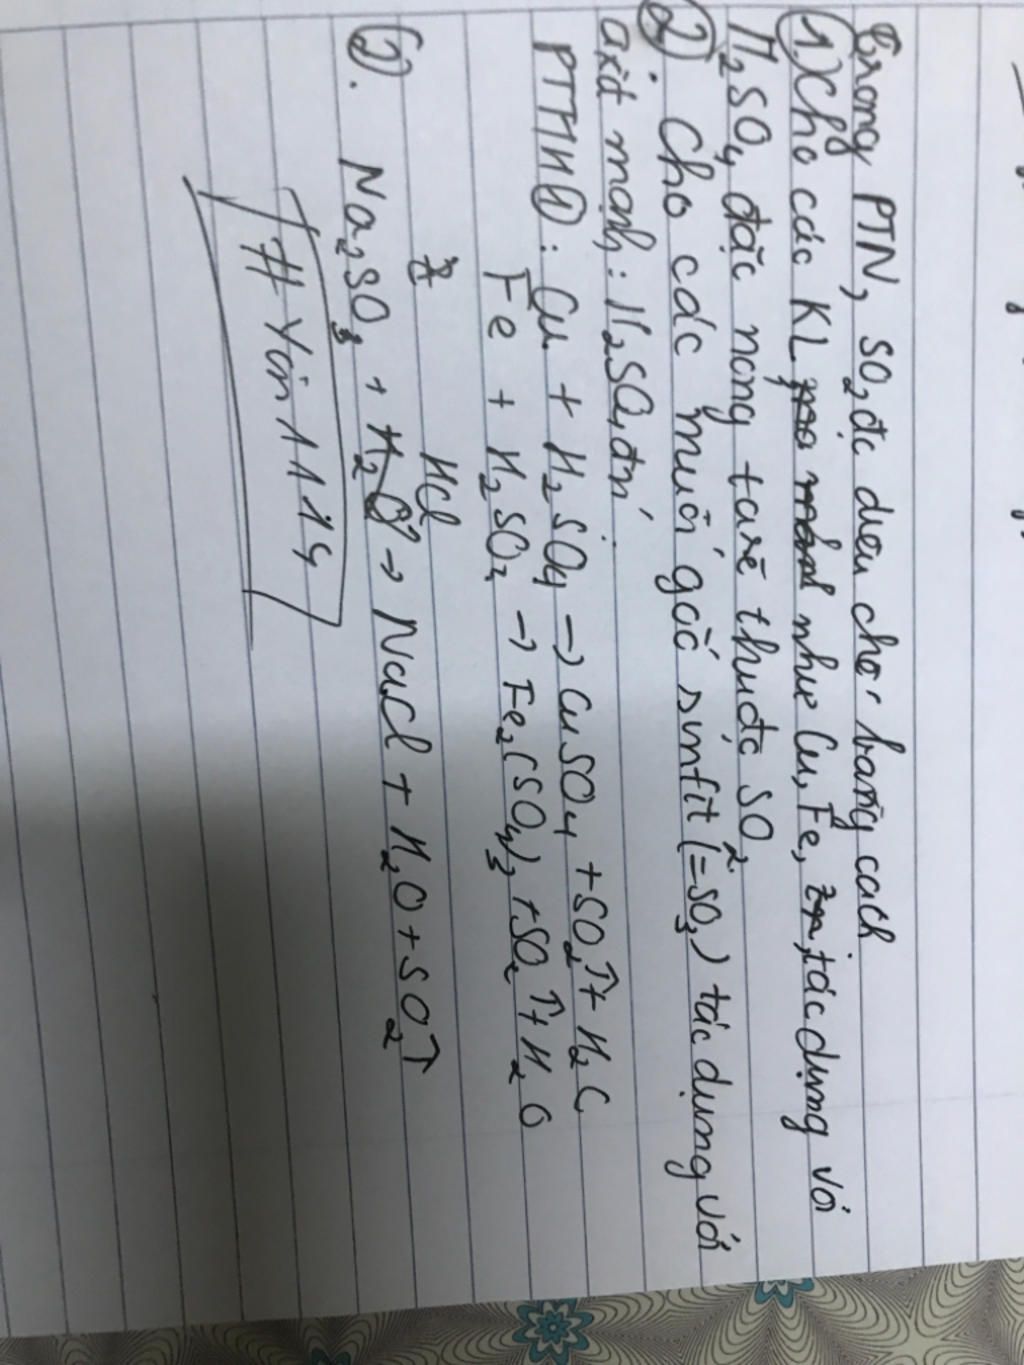 Trong PTN, SO2 đc điều chế bằng cách
1. Cho các KL như Cu, Fe, tác dụng với
H2SO4 đặc nóng ta sẽ thu đc SO2
2 Cho các muối gốc sunfit (=SO3) tác dụng với
axit mạnh: H2SO4, đn'
PTHH 1: Cu + H2SO4 → CuSO4 + SO2↑ + H2O
Fe + H2SO4 → Fe2(SO4)3 + SO2↑ + H2O
HCl
2. Na2SO3 + → NaCl + H2O + SO2↑
# Yin 1114